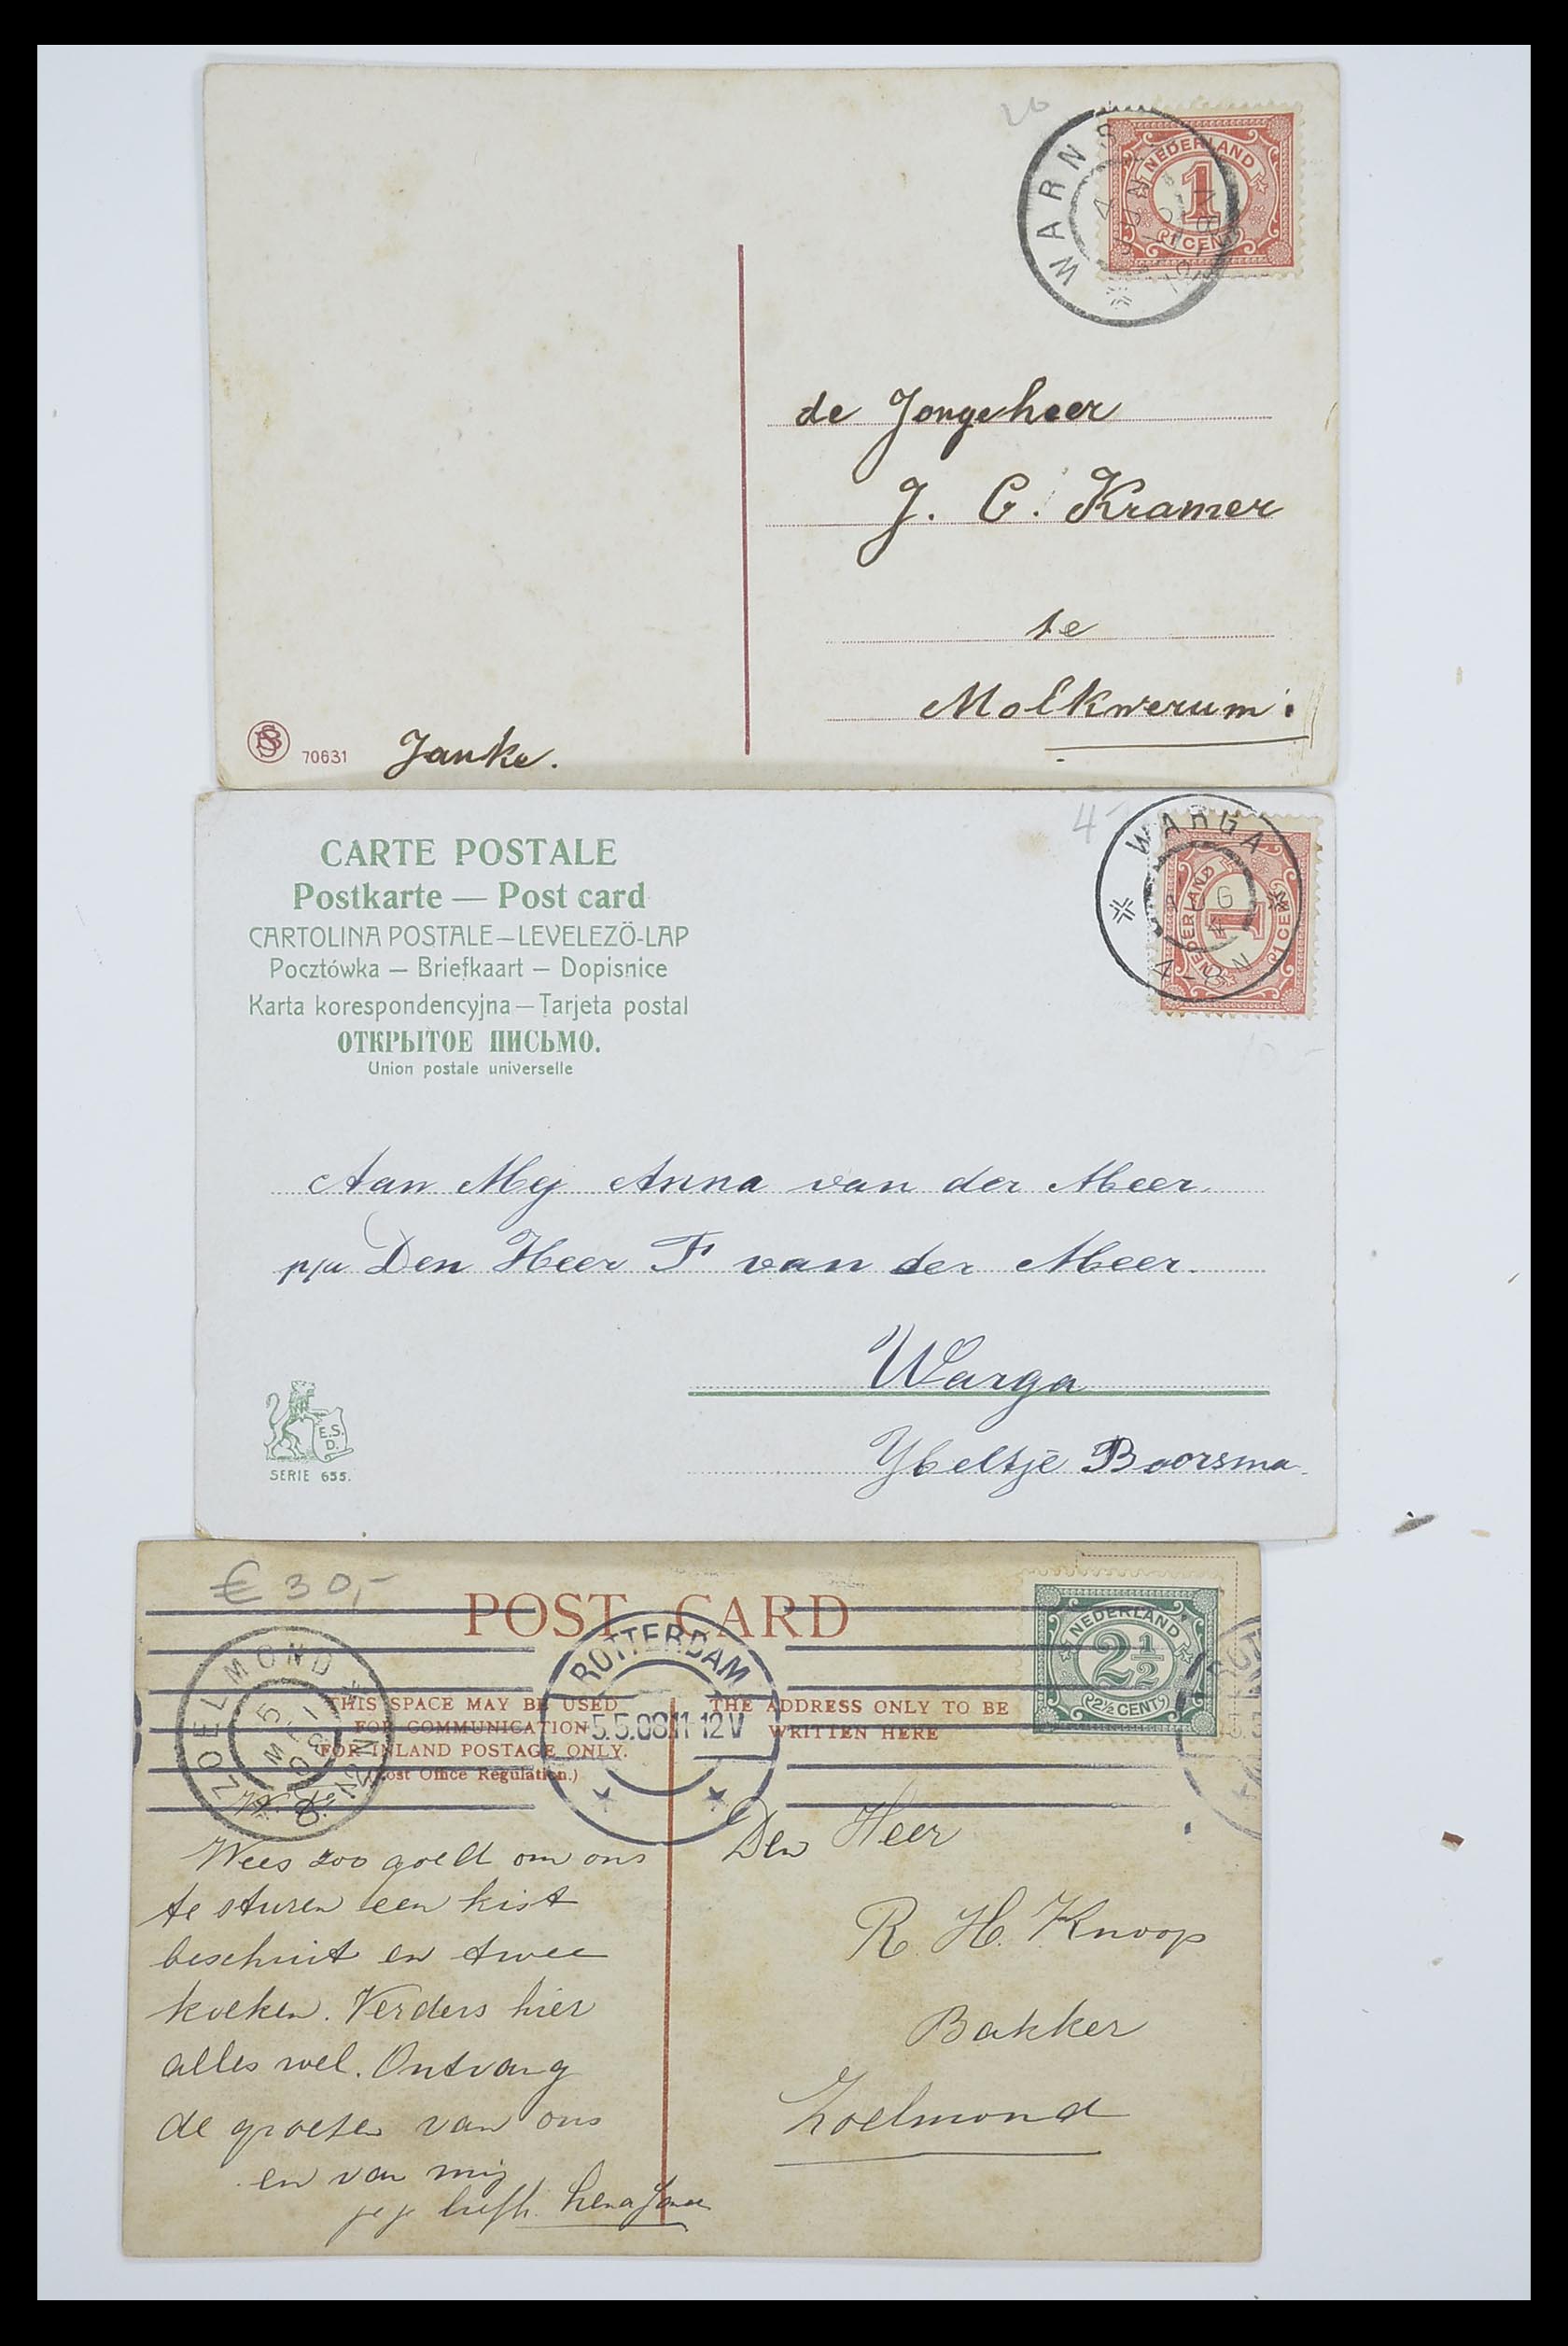 20
WARNS
4 JUN
NEDERLAND
1
1 CENT
de Jongeheer
J. G. Kramer
te
Molkwerum
70631
Janke.
4-
WARGA
AUG
4-8N
NEDERLAND
1
1 CENT
CARTE POSTALE
Postkarte — Post card
CARTOLINA POSTALE—LEVELEZÖ-LAP
Pocztówka — Briefkaart — Dopisnice
Karta korespondencyjna—Tarjeta postal
ОТКРЫТОЕ ПИСЬМО.
Union postale universelle
Aan Mej Anna van der Meer.
p/a Den Heer F van der Meer.
Warga
E.S.
D.
SERIE 655.
IJbeltje Boorsma.
€ 30,-
POST CARD
NEDERLAND
2½
2½ CENT
ZOELMOND
5 MEI
ROTTERDAM
5.5.08.11-12V
THIS SPACE MAY BE USED
FOR COMMUNICATION
FOR INLAND POSTAGE ONLY.
(Post Office Regulation.)
THE ADDRESS ONLY TO BE
WRITTEN HERE
Wees zoo goed om ons
te sturen een kist
beschuit en twee
koeken. Verders hier
alles wel. Ontvang
de groeten van ons
en van mij
je je liefh. Lena
Den Heer
R. H. Knoop
Bakker
Zoelmond